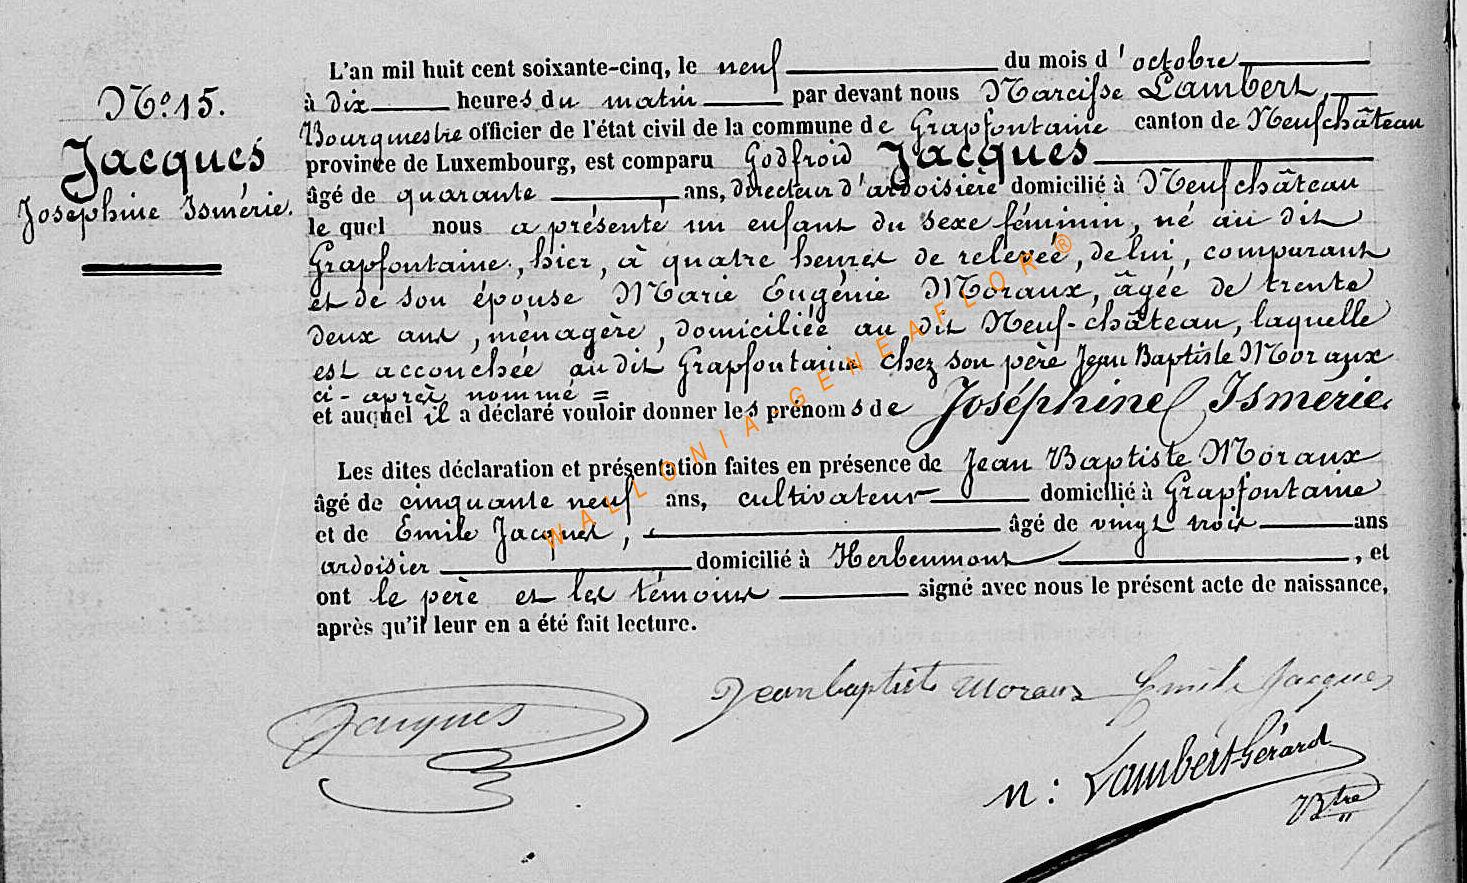 N.o 15.
Jacques
Joséphine Ismérie.
L'an mil huit cent soixante-cinq, le neuf du mois d'octobre
à dix heures du matin par devant nous Narcisse Lambert,
Bourgmestre officier de l'état civil de la commune de Grapfontaine canton de Neufchâteau
province de Luxembourg, est comparu Godfroid Jacques
âgé de quarante ans, directeur d'ardoisière domicilié à Neufchâteau
le quel nous a présenté un enfant du sexe féminin, né au dit
Grapfontaine, hier, à quatre heures de relevée, de lui, comparant
et de son épouse Marie Eugénie Moraux, âgée de trente
deux ans, ménagère, domiciliée au dit Neuf-château, laquelle
est accouchée au dit Grapfontaine chez son père Jean Baptiste Moraux
ci-après nommé =
et auquel il a déclaré vouloir donner les prénoms de Joséphine Ismérie.
Les dites déclaration et présentation faites en présence de Jean Baptiste Moraux
âgé de cinquante neuf ans, cultivateur domicilié à Grapfontaine
et de Emile Jacques, âgé de vingt trois ans
ardoisier domicilié à Herbeumont, et
ont le père et les témoins signé avec nous le présent acte de naissance,
après qu'il leur en a été fait lecture.
Jacques
Jean baptiste Moraux Emile Jacques
N: Lambert-Gérard
Btre
WALLONIA-GENEAFLOR®